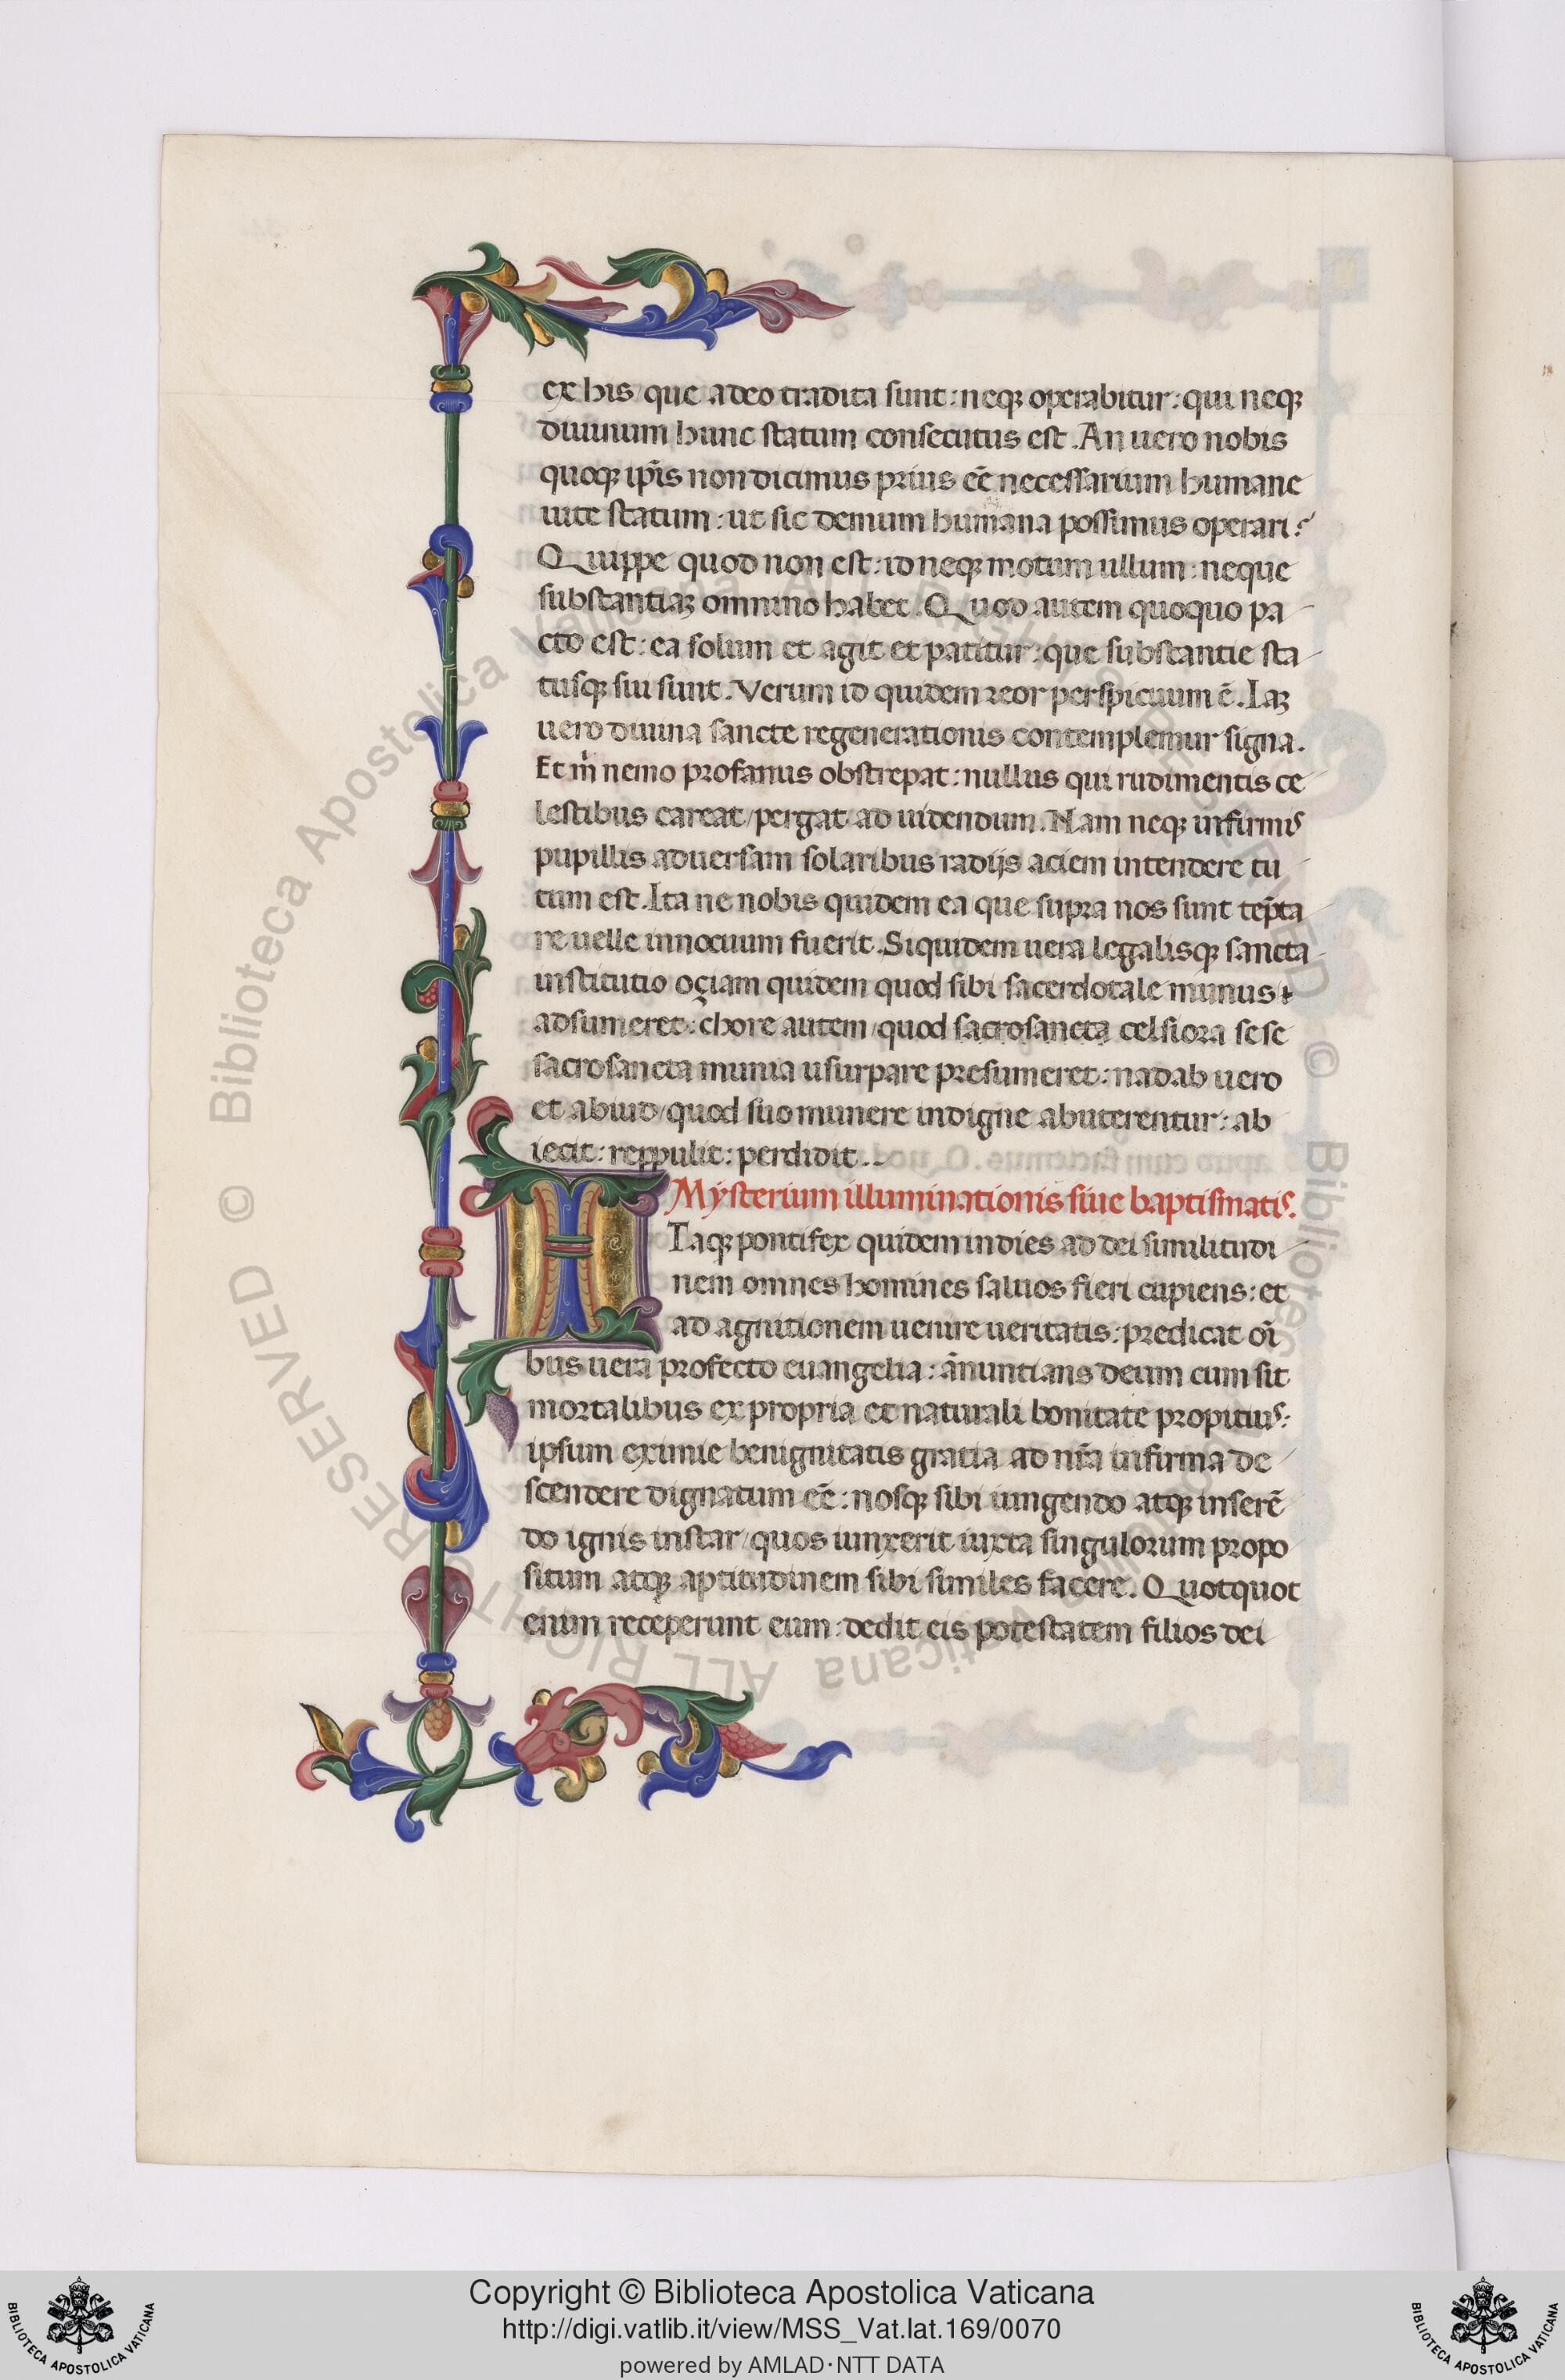 ex his que adeo tradita sunt: neqꝫ operabitur: qui neqꝫ
diuinum hunc statum consecutus est. An uero nobis
quoqꝫ ip̃is non dicimus prius eẽ necessarium humane
uite statum: ut sic demum humana possimus operari?
Quippe quod non est: id neqꝫ motum ullum: neque
substantiaꝫ omnino habet. Quod autem quoquo pa
cto est: ea solum et agit et patitur: que substantie sta
tusqꝫ sui sunt. Verum id quidem reor perspicuum ẽ. Iaꝫ
uero diuina sancte regenerationis contemplemur signa.
Et m̃ nemo profanus obstrepat: nullus qui rudimentis ce
lestibus careat/pergat ad uidendum. Nam neqꝫ infirmis
pupillis aduersam solaribus radijs aciem intendere tu
tum est. Ita ne nobis quidem ea que supra nos sunt tep̃ta
re uelle innocuum fuerit. Siquidem uera legalisqꝫ sancta
institutio oçiam quidem quod sibi sacerdotale munus
adsumeret: chore autem/quod sacrosancta celsiora sese
sacrosancta munia usurpare presumeret: nadab uero
et abiud/quod suo munere indigne abuterentur: ab
iecit: reppulit: perdidit.
Mysterium illuminationis siue baptismatis.
ITaqꝫ pontifex quidem indies ad dei similitudi
nem omnes homines saluos fieri cupiens: et
ad agnitionem uenire ueritatis: predicat oĩ
bus uera profecto euangelia: ãnuntians deum cum sit
mortalibus ex propria et naturali bonitate propitius:
ipsum eximie benignitatis gratia ad nr̃a infirma de
scendere dignatum eẽ: nosqꝫ sibi iungendo atqꝫ inserẽ
do ignis instar/quos iunxerit iuxta singulorum propo
situm atqꝫ aptitudinem sibi similes facere. Quotquot
enim receperunt eum: dedit eis potestatem filios dei
© Biblioteca Apostolica Vaticana ALL RIGHTS RESERVED
Copyright © Biblioteca Apostolica Vaticana
http://digi.vatlib.it/view/MSS_Vat.lat.169/0070
powered by AMLAD·NTT DATA
BIBLIOTECA APOSTOLICA VATICANA
BIBLIOTECA APOSTOLICA VATICANA